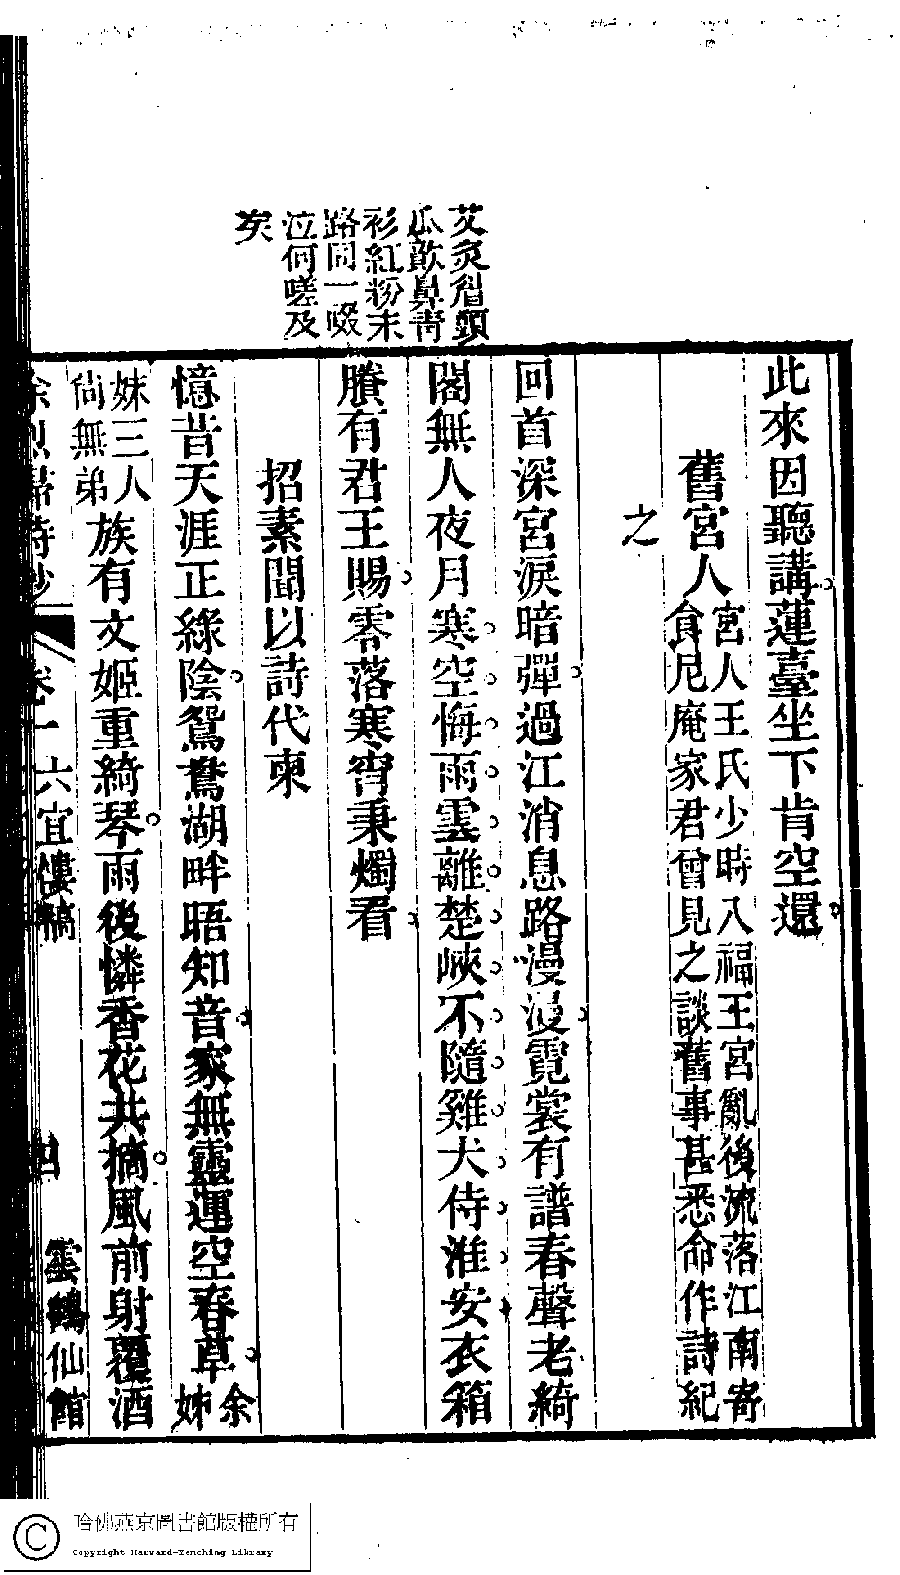 艾灸眉頭
瓜歕鼻靑
衫紅粉末
路同一啜
泣何嗟及
矣
此來因聽講蓮臺坐下肯空還
舊宮人
宮人王氏少時入福王宮亂後流落江南寄
食尼庵家君曾見之談舊事甚悉命作詩紀
之
回首深宮淚暗彈過江消息路漫漫霓裳有譜春聲老綺
閣無人夜月寒空悔雨雲離楚峽不隨雞犬侍淮安衣箱
賸有君王賜零落寒宵秉燭看
招素聞以詩代柬
憶昔天涯正綠陰鴛鴦湖畔晤知音家無靈運空春草余姊
妹三人尚無弟族有文姬重綺琴雨後憐香花共摘風前射覆酒
卷一 六宜樓稿 四 雲鶴仙館
哈佛燕京圖書館版權所有
Copyright Harvard-Yenching Library